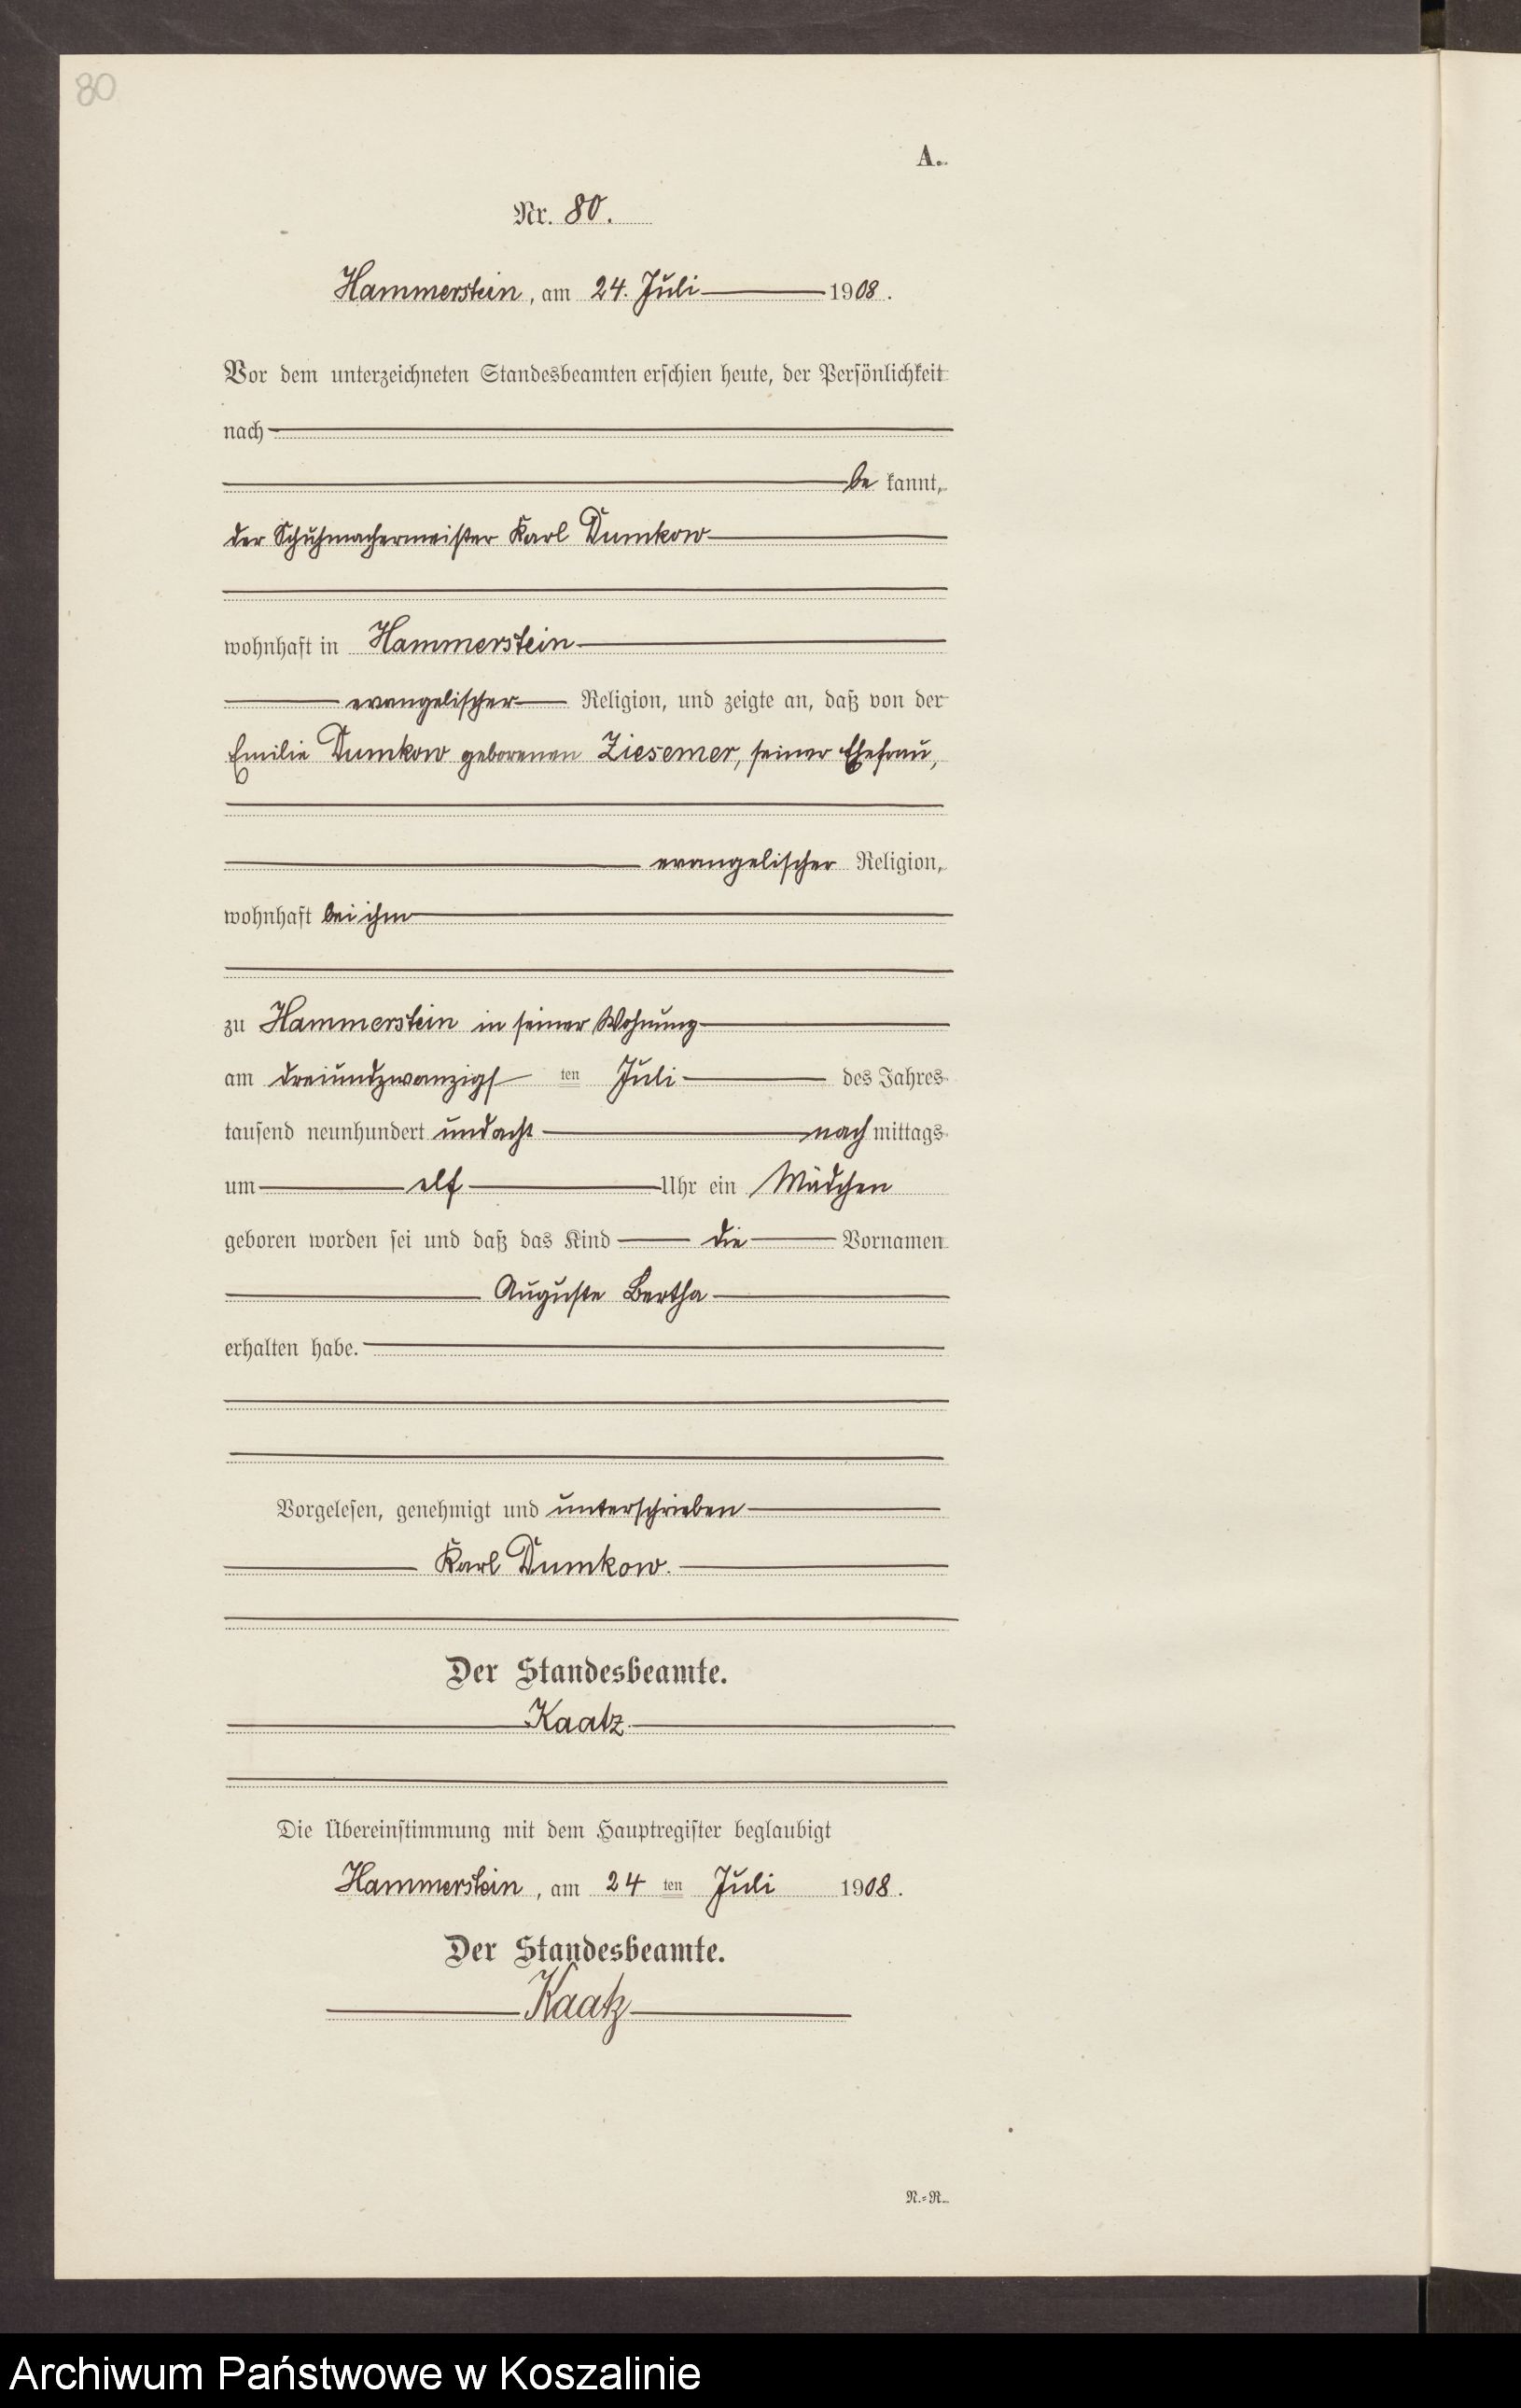 80
A.
Nr. 80.
Hammerstein, am 24. Juli 1908.
Vor dem unterzeichneten Standesbeamten erschien heute, der Persönlichkeit
nach
be kannt,
der Schuhmachermeister Karl Dumkow
wohnhaft in Hammerstein
evangelischer Religion, und zeigte an, daß von der
Emilie Dumkow geborenen Ziesemer, seiner Ehefrau,
evangelischer Religion,
wohnhaft bei ihm
zu Hammerstein in seiner Wohnung
am dreiundzwanzigsten Juli des Jahres
tausend neunhundert undacht nach mittags
um elf Uhr ein Mädchen
geboren worden sei und daß das Kind die Vornamen
Auguste Bertha
erhalten habe.
Vorgelesen, genehmigt und unterschrieben
Karl Dumkow.
Der Standesbeamte.
Kaatz
Die Übereinstimmung mit dem Hauptregister beglaubigt
Hammerstein, am 24 ten Juli 1908.
Der Standesbeamte.
Kaatz
N.=R.
Archiwum Państwowe w Koszalinie